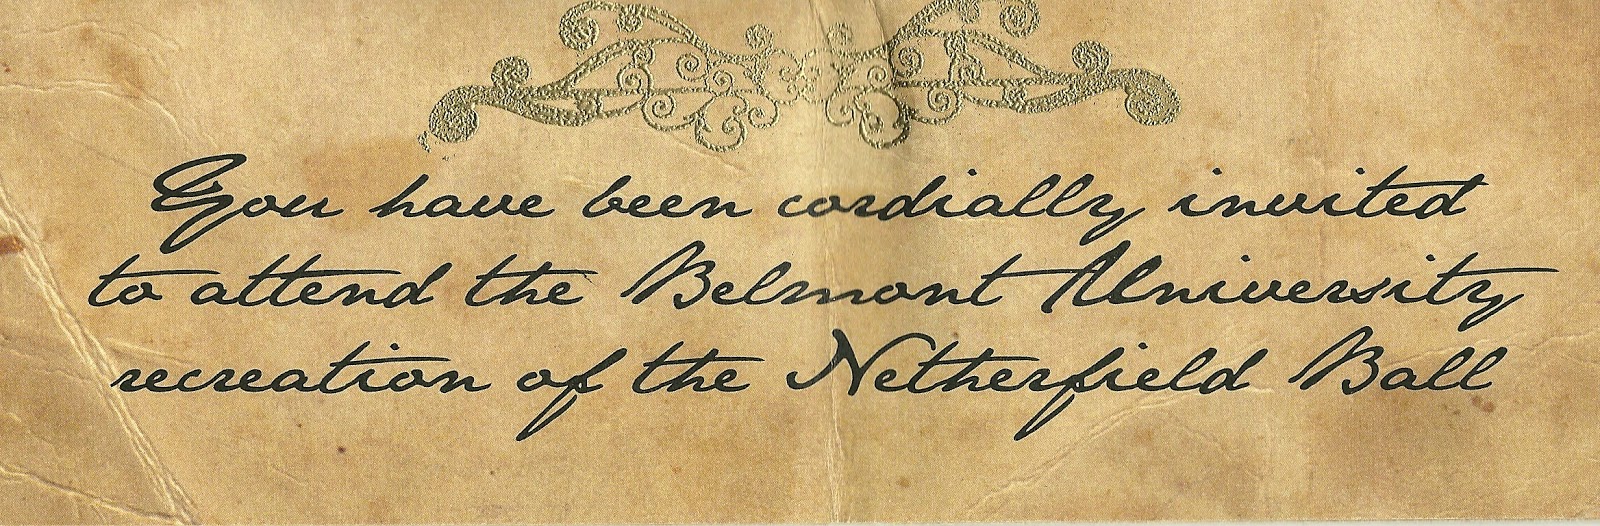 You have been cordially invited
to attend the Belmont University
recreation of the Netherfield Ball